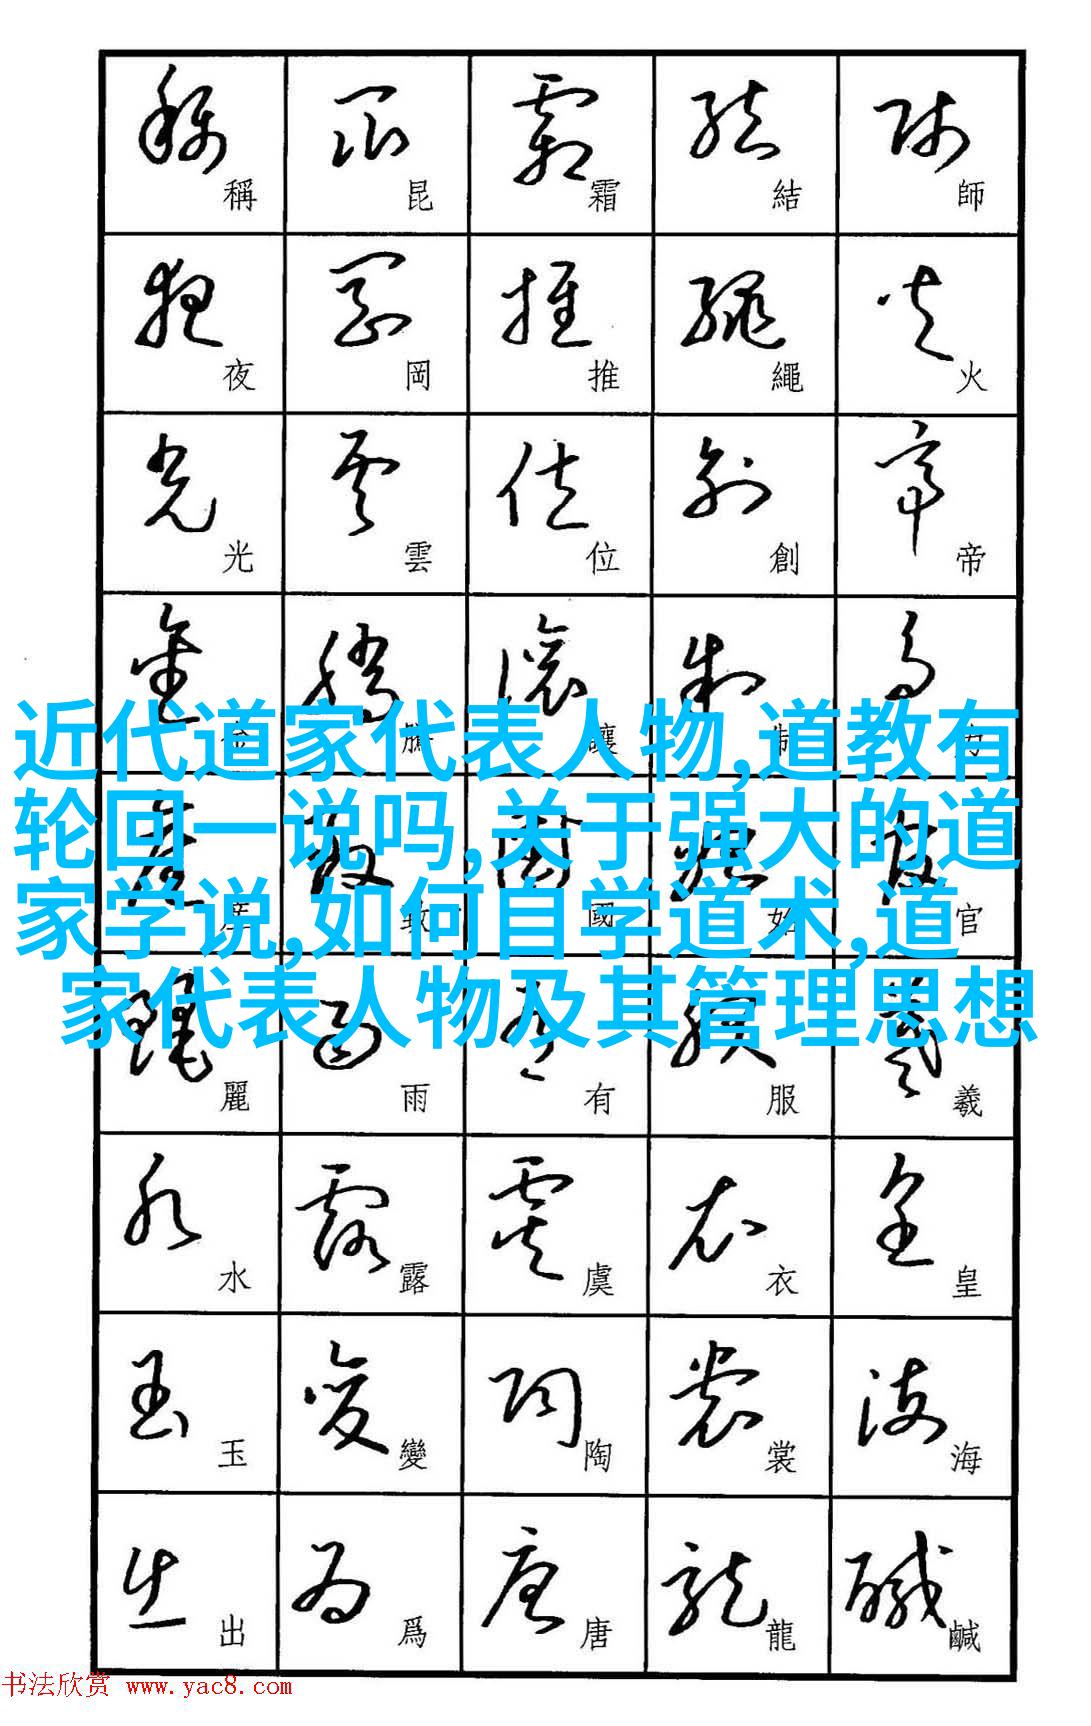 師火帝官羲皇海鹹
結繩創制始服衣裳龍
霜推位讓國有虞陶唐
昆岡雲騰致雨露變爲
稱夜光金麗水玉出
近代道家代表人物,道教有
轮回一说吗,关于强大的道
家学说,如何自学道术,道
家代表人物及其管理思想
书法欣赏 www.yac8.com